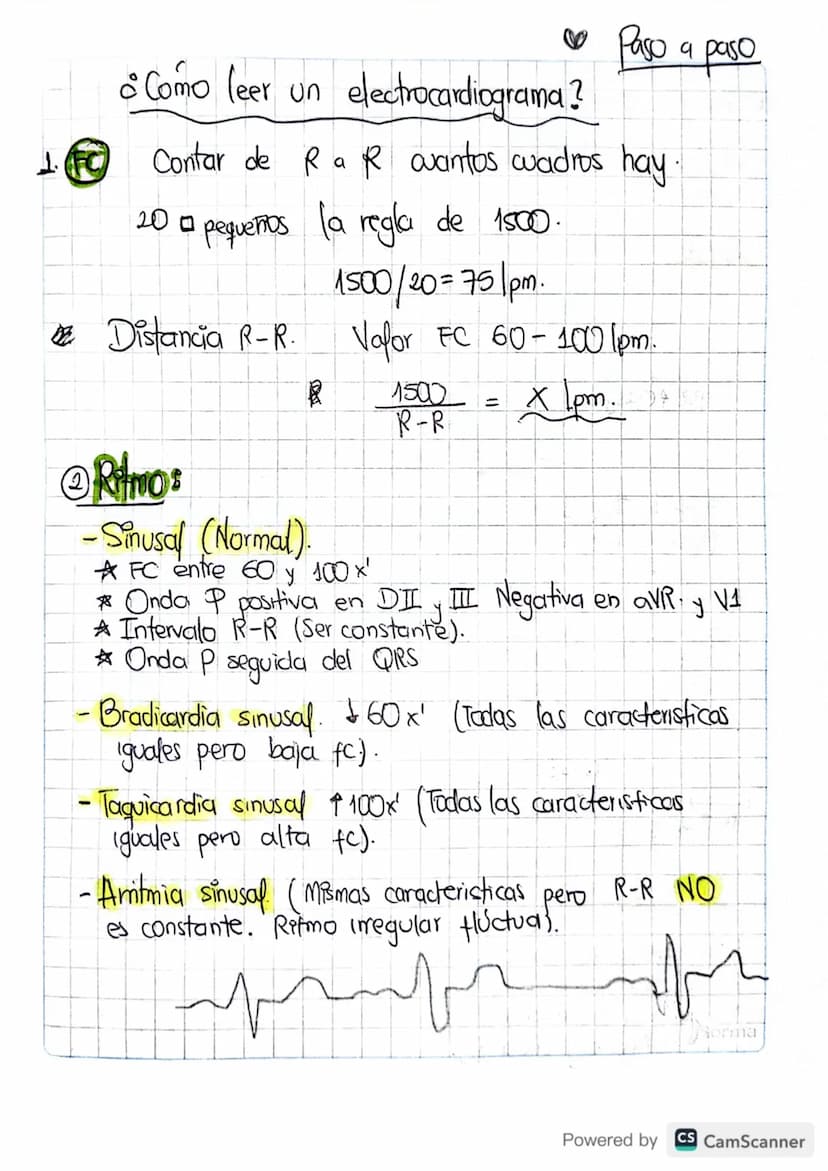 Paso a paso
¿Cómo leer un electrocardiograma?
1. FC Contar de R a R cuantos cuadros hay.
20 □ pequeños la regla de 1500.
1500/20 = 75 lpm.
Distancia R-R. Valor FC 60 - 100 lpm.
1500 / R-R = x lpm.
② Ritmo:
- Sinusal (Normal).
☆ FC entre 60 y 100 x'
☆ Onda P positiva en DII y III Negativa en aVR. y V1
☆ Intervalo R-R (Ser constante).
☆ Onda P seguida del QRS
- Bradicardia sinusal. ↓ 60 x' (Todas las caracteristicas
iguales pero baja fc).
- Taquicardia sinusal ↑ 100x' (Todas las caracteristicas
iguales pero alta fc).
- Arritmia sinusal. (Mismas caracteristicas pero R-R NO
es constante. Ritmo irregular fluctua).
Norma
Powered by CS CamScanner